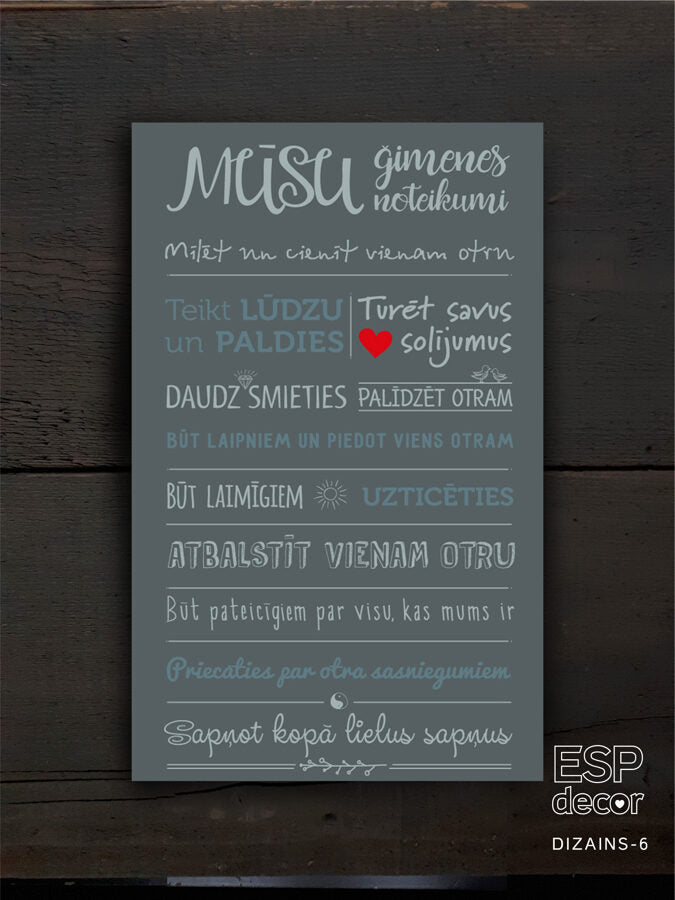 MŪSU ģimenes
noteikumi
Mīlēt un cienīt vienam otru
Teikt LŪDZU
un PALDIES
Turēt savus
solījumus
DAUDZ SMIETIES
PALĪDZĒT OTRAM
BŪT LAIPNIEM UN PIEDOT VIENS OTRAM
BŪT LAIMĪGIEM
UZTICĒTIES
ATBALSTĪT VIENAM OTRU
Būt pateicīgiem par visu, kas mums ir
Priecāties par otra sasniegumiem
Sapņot kopā lielus sapņus
ESP
decor
DIZAINS-6